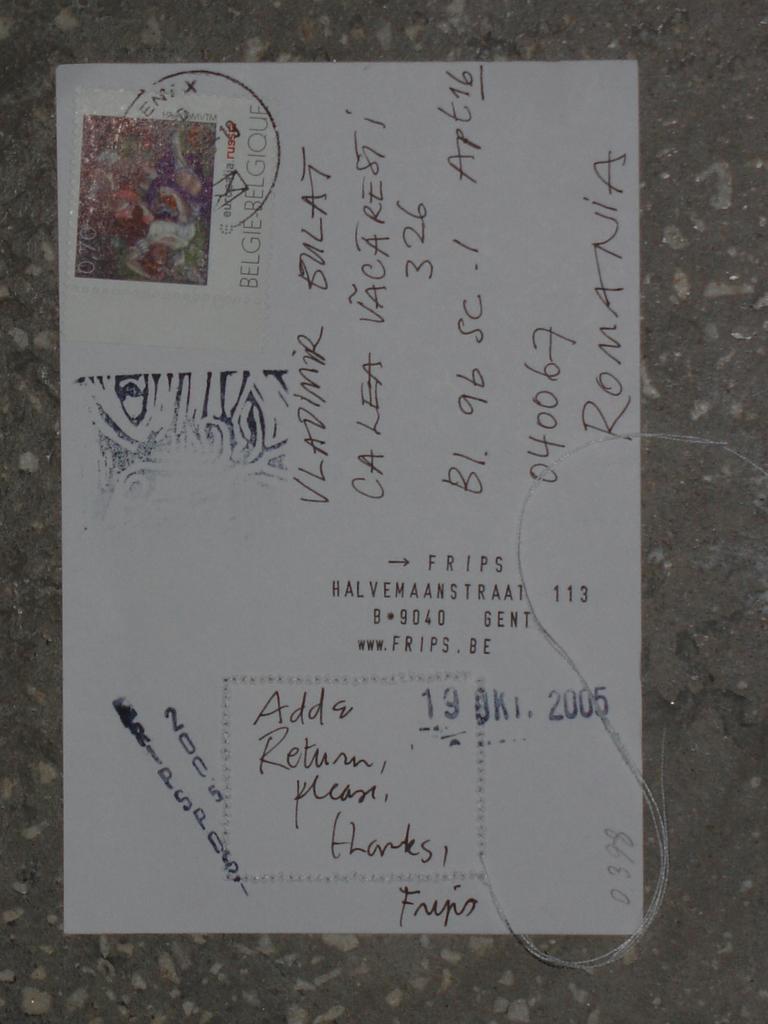 BELGIË-BELGIQUE
russia
VLADIMIR BULAT
CALEA VĂCĂREȘTI
326
Bl. 9b SC. 1 Apt 16
040067
ROMANIA
→ FRIPS
HALVEMAANSTRAAT 113
B•9040 GENT
www.FRIPS.BE
19 OKT. 2005
Add &
Return,
please,
thanks,
Frips
0398